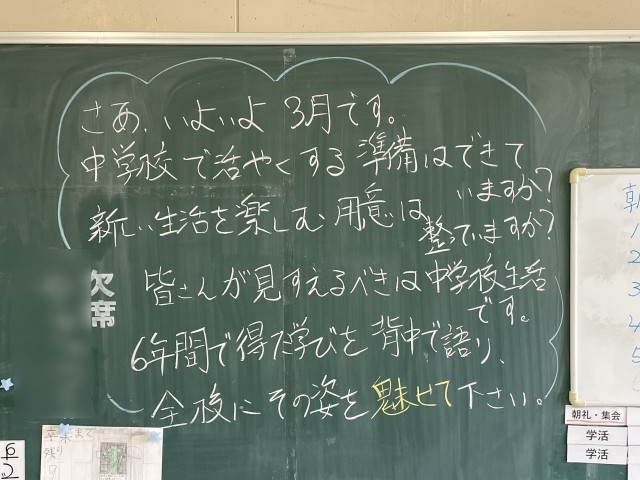 さあ、いよいよ 3月です。
中学校で活やくする準備はできて
いますか?
新しい生活を楽しむ用意は
整っていますか?
皆さんが見すえるべきは中学校生活
です。
6年間で得た学びを背中で語り、
全校にその姿を魅せて下さい。
欠席
卒業まで
残り
朝
1
2
3
4
5
朝礼・集会
学活
学活